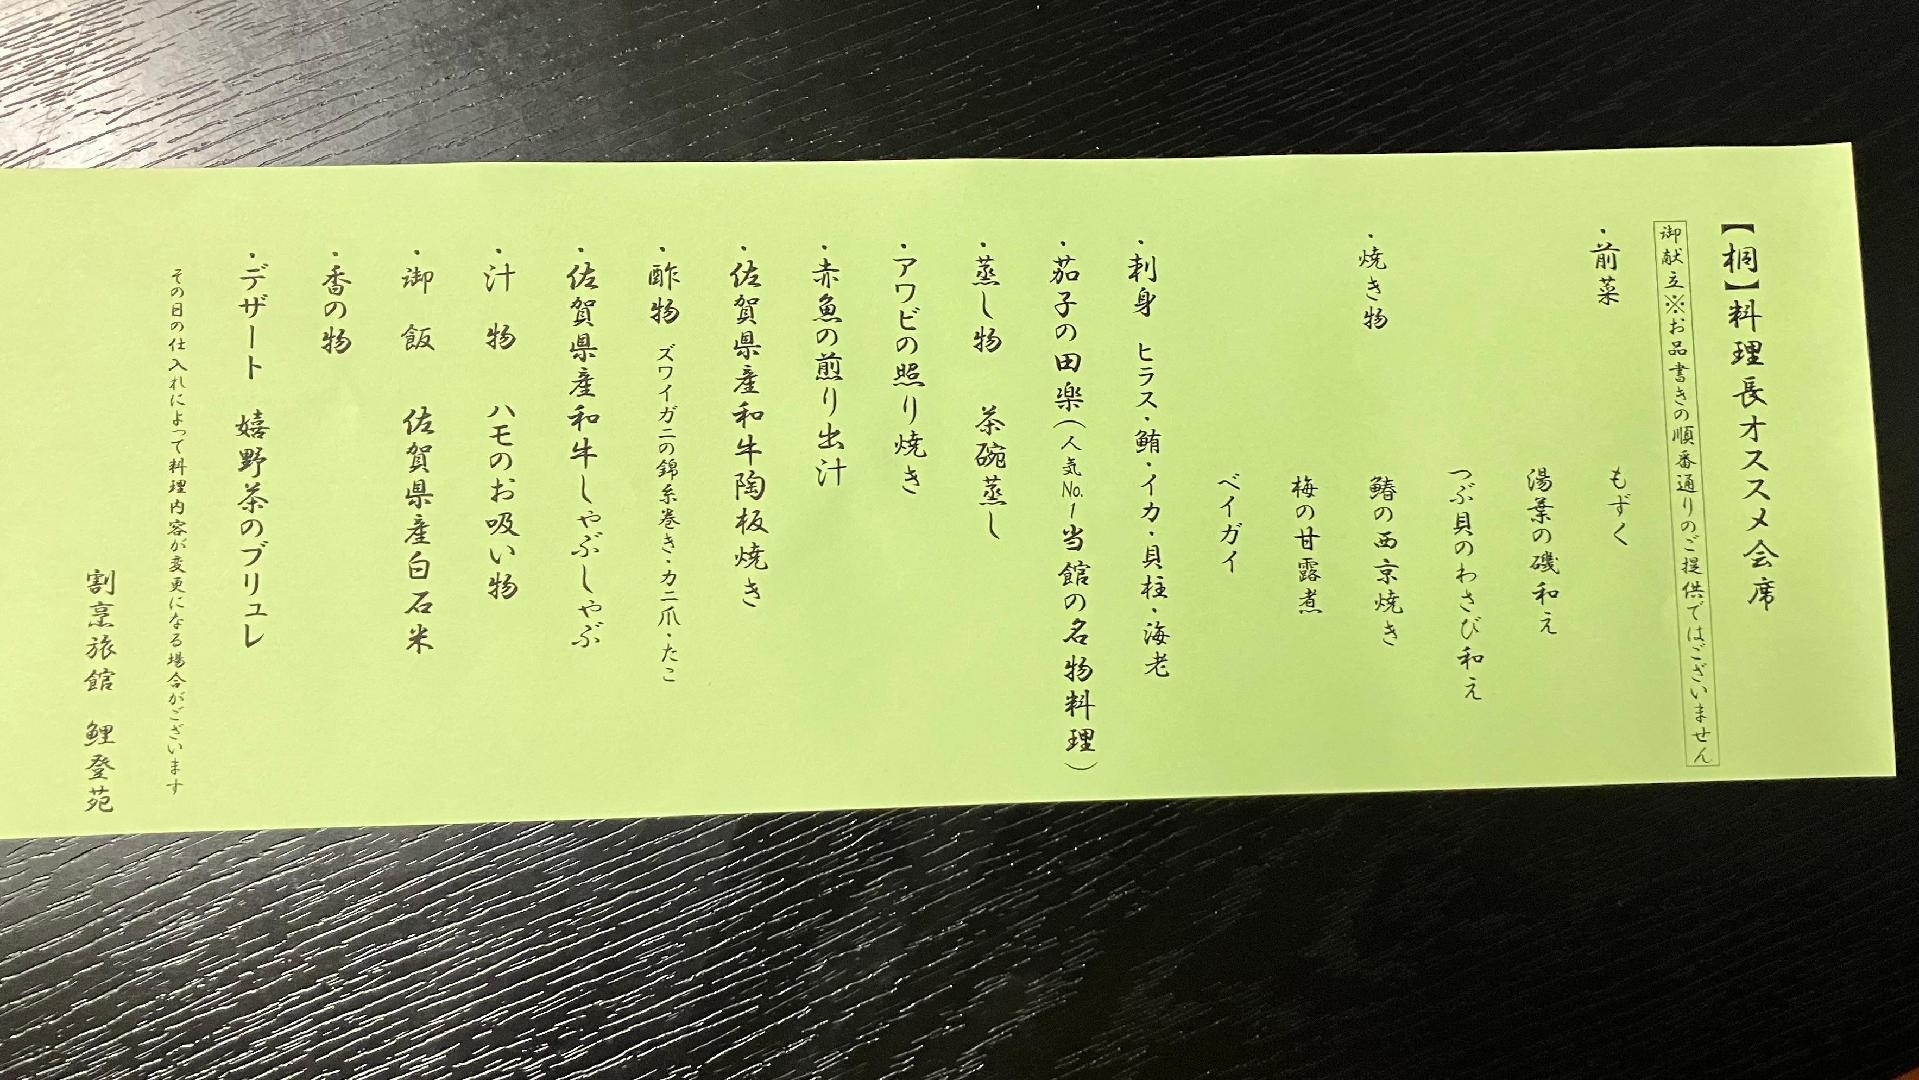 【桐】料理長オススメ会席
御献立※お品書きの順番通りのご提供ではございません
・前菜 もずく
湯葉の磯和え
つぶ貝のわさび和え
・焼き物 鰆の西京焼き
梅の甘露煮
ベイガイ
・刺身 ヒラス・鮪・イカ・貝柱・海老
・茄子の田楽(人気No.1当館の名物料理)
・蒸し物 茶碗蒸し
・アワビの照り焼き
・赤魚の煎り出汁
・佐賀県産和牛陶板焼き
・酢物 ズワイガニの錦糸巻き・カニ爪・たこ
・佐賀県産和牛しゃぶしゃぶ
・汁物 ハモのお吸い物
・御飯 佐賀県産白石米
・香の物
・デザート 嬉野茶のブリュレ
その日の仕入れによって料理内容が変更になる場合がございます
割烹旅館 鯉登苑